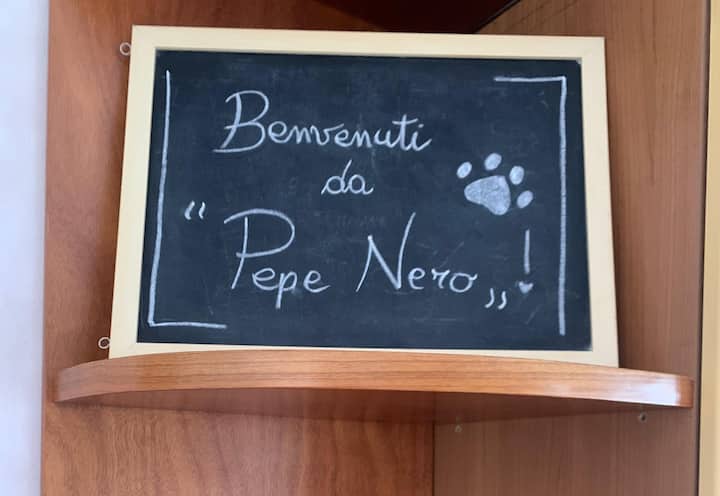 Benvenuti
da
"Pepe Nero"!